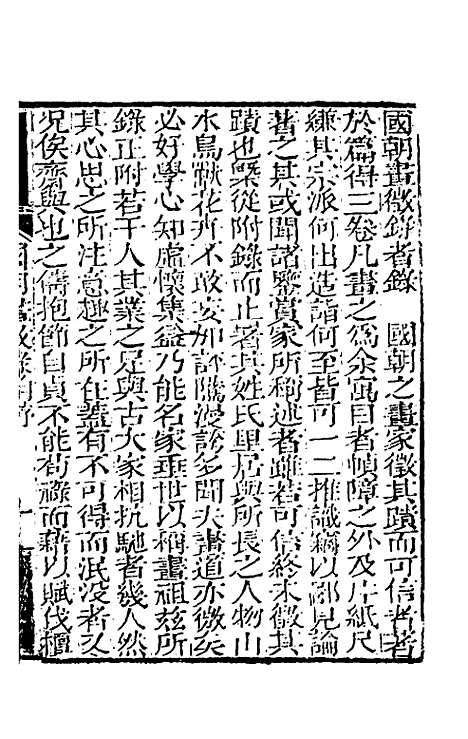 國朝畫徵錄者錄　國朝之畫家徵其蹟而可信者著
於篇得三卷凡畫之為余寓目者幀障之外及片紙尺
縑其宗派何出造詣何至皆可一二推識竊以鄙見論
著之其或聞諸鑒賞家所稱述者雖若可信終未徵其
蹟也槩從附錄而止著其姓氏里居與所長之人物山
水鳥獸花卉不敢妄加評隲漫誇多聞夫畫道亦微矣
必好學心知虛懷集益乃能名家垂世以稱畫祖茲所
錄正附若干人其業之足與古大家相抗馳者幾人然
其心思之所注意趣之所在蓋有不可得而泯沒者又
況侯齊與也之儔抱節自貞不能茍祿而藉以賦伐檀